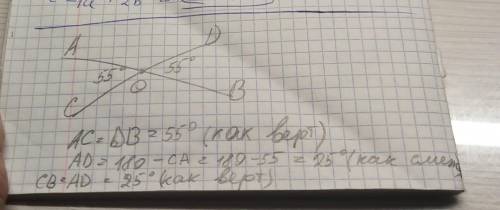 A
D
55°
55°
O
B
C
AC = DB = 55° (как верт)
AD = 180 - CA = 180 - 55 = 25° (как смеж
CB = AD = 25° (как верт)